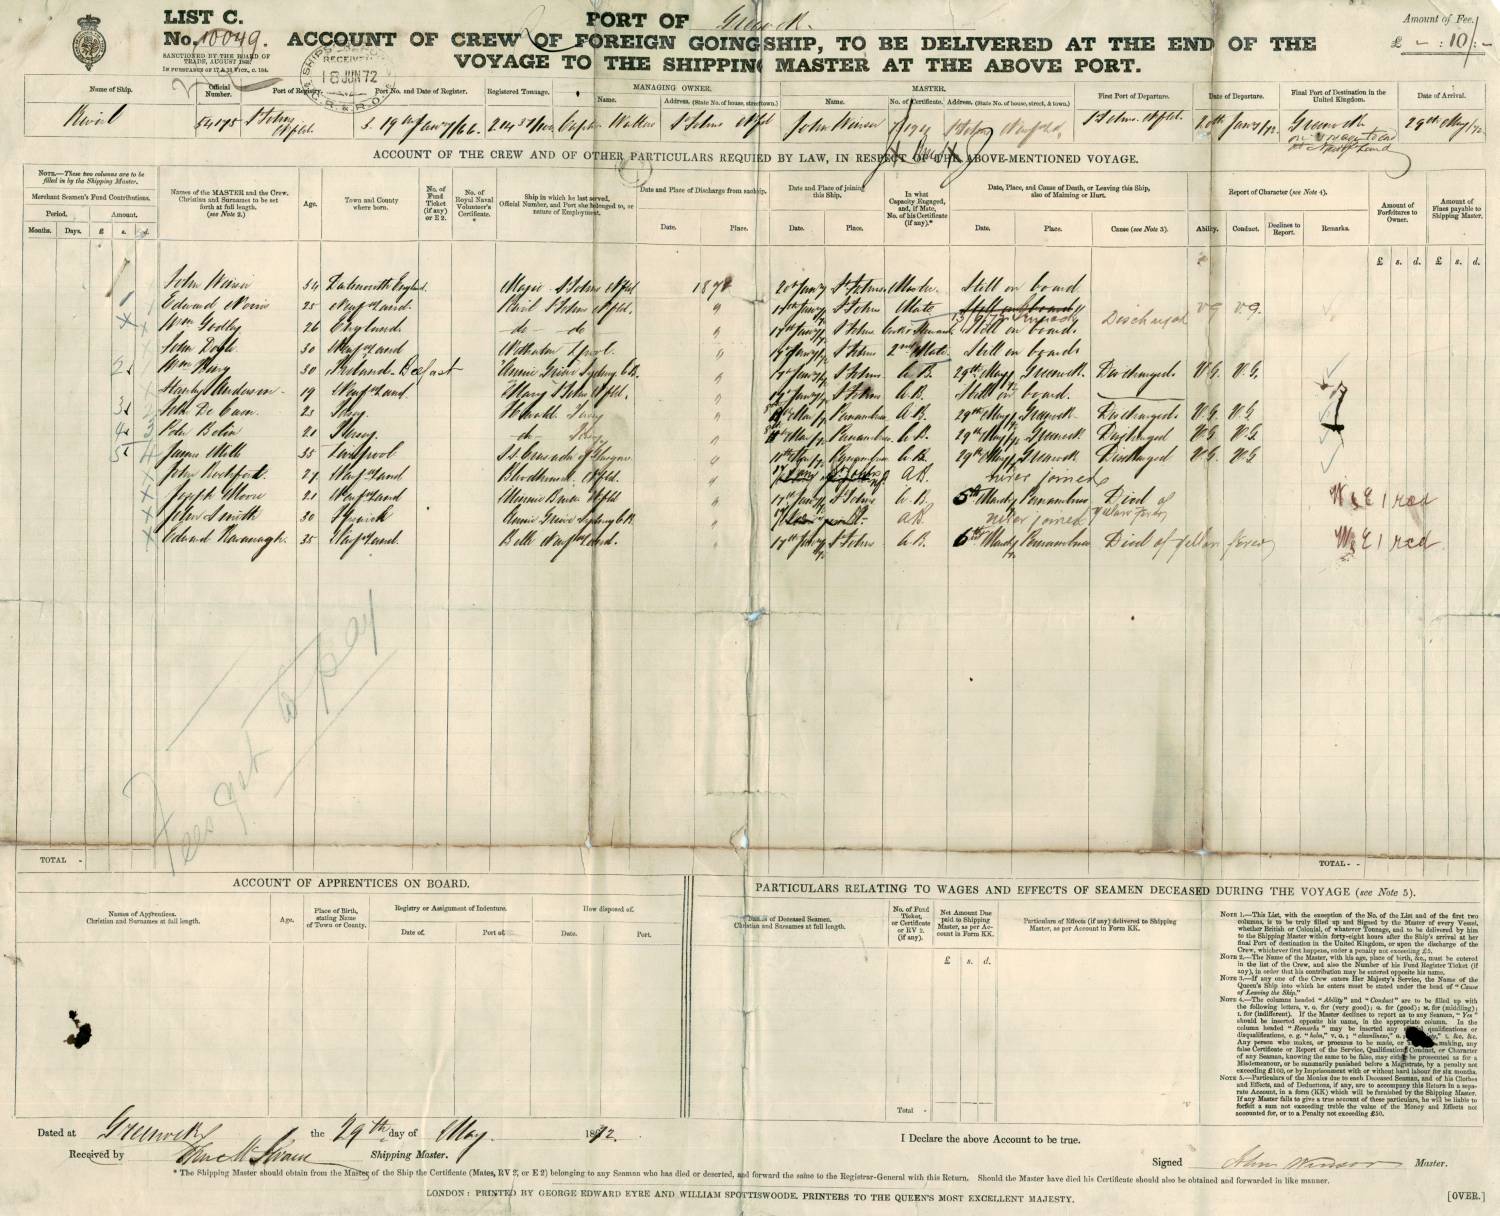 LIST C.
PORT OF Greenock
Amount of Fee.
No. 10049. ACCOUNT OF CREW OF FOREIGN GOING SHIP, TO BE DELIVERED AT THE END OF THE
£ - : 10/: -
SANCTIONED BY THE BOARD OF
TRADE, AUGUST
IN PURSUANCE OF 17 & 18 VICT., c. 104.
RECEIVED
18 JUN 72
VOYAGE TO THE SHIPPING MASTER AT THE ABOVE PORT.
Name of Ship. Official Number. Port of Registry. Port No. and Date of Register. Registered Tonnage. MANAGING OWNER. Name. Address, (State No. of house, street, town.) MASTER. Name. No. of Certificate. Address, (State No. of house, street, & town.) First Port of Departure. Date of Departure. Final Port of Destination in the United Kingdom. Date of Arrival.
54175 St Johns Nfld. 3. 19th Jany/66. St Johns Nfld John Winsor St Johns Nfld. 20th Jany/72. Greenock 29th May/72
ACCOUNT OF THE CREW AND OF OTHER PARTICULARS REQUIED BY LAW, IN RESPECT OF THE ABOVE-MENTIONED VOYAGE.
NOTE.—These two columns are to be filled in by the Shipping Master.
Merchant Seamen's Fund Contributions.
Period. Amount.
Months. Days. £ s. d.
Names of the MASTER and the Crew. Christian and Surnames to be set forth at full length. (see Note 2.)
Age.
Town and County where born.
No. of Fund Ticket (if any) or E 2.
No. of Royal Naval Volunteer's Certificate. *
Ship in which he last served, Official Number, and Port she belonged to, or nature of Employment.
Date and Place of Discharge from such ship.
Date. Place.
Date and Place of joining this Ship.
Date. Place.
In what Capacity Engaged, and, if Mate, No. of his Certificate (if any).*
Date, Place, and Cause of Death, or Leaving this Ship, also of Maiming or Hurt.
Date. Place. Cause (see Note 3).
Report of Character (see Note 4).
Ability. Conduct. Declines to Report. Remarks.
Amount of Forfeitures to Owner.
Amount of Fines payable to Shipping Master.
£ s. d. £ s. d.
John Winsor 54 Dartmouth England. St Johns Nfld 1871 20th Jany St Johns Master. Still on board
Edward 25 Newfoundland. St Johns Nfld. " 17th Jany St Johns Mate Still on board Discharged V G V.G.
Wm Godley 26 England - do - do " 17th Jany St Johns Still on board.
John Doyle 30 Newfoundland " St Johns 2nd Mate Still on board
Wm 30 Ireland Belfast Annie Grieve Sydney C.B. " St Johns A.B. 29th May Greenock Discharged V.G. V.G.
Anderson 19 Newfoundland. Mary St Johns Nfld. " St Johns A.B. Still on board.
John De Caen. 23 Jersey. Jersey " Pernambuco A.B. 29th May Greenock Discharged V.G V.G
Peter 21 Jersey. - do - Jersey " Pernambuco A.B. 29th May Greenock Discharged V.G. V.G
James Mills 35 Liverpool of Glasgow " Pernambuco A.B. 29th May Greenock Discharged V.G V.G
John Rochford. 27 Newfoundland Nfld. " A.B. never joined
Joseph Moore 21 Newfoundland Minnie Nfld " 17th Jany St Johns A.B. 5th March Pernambuco Died of Yellow fever W & E 1 red
John Smith 30 Annie Grieve Sydney C.B. " A.B. never joined
Edward Kavanagh. 35 Newfoundland. Newfoundland. 17th Jany St Johns A.B. 6th March Pernambuco Died of Yellow fever W & E 1 red
Fees yet to pay
TOTAL -
TOTAL - -
ACCOUNT OF APPRENTICES ON BOARD.
Names of Apprentices. Christian and Surnames at full length.
Age.
Place of Birth, stating Name of Town or County.
Registry or Assignment of Indenture.
Date of. Port of.
How disposed of.
Date. Port.
PARTICULARS RELATING TO WAGES AND EFFECTS OF SEAMEN DECEASED DURING THE VOYAGE (see Note 5).
Names of Deceased Seamen. Christian and Surnames at full length.
No. of Fund Ticket, or Certificate or RV 2. (if any).
Net Amount Due paid to Shipping Master, as per Account in Form KK.
£ s. d.
Particulars of Effects (if any) delivered to Shipping Master, as per Account in Form KK.
Total -
NOTE 1.—This List, with the exception of the No. of the List and of the first two
columns, is to be truly filled up and Signed by the Master of every Vessel,
whether British or Colonial, of whatever Tonnage, and to be delivered by him
to the Shipping Master within forty-eight hours after the Ship's arrival at her
final Port of destination in the United Kingdom, or upon the discharge of the
Crew, whichever first happens, under a penalty not exceeding £5.
NOTE 2.—The Name of the Master, with his age, place of birth, &c., must be entered
in the list of the Crew, and also the Number of his Fund Register Ticket (if
any), in order that his contribution may be entered opposite his name.
NOTE 3.—If any one of the Crew enters Her Majesty's Service, the Name of the
Queen's Ship into which he enters must be stated under the head of "Cause
of Leaving the Ship."
NOTE 4.—The columns headed "Ability" and "Conduct" are to be filled up with
the following letters, v. G. for (very good); G. for (good); M. for (middling);
I. for (indifferent). If the Master declines to report as to any Seaman, "Yes"
should be inserted opposite his name, in the appropriate column. In the
column headed "Remarks" may be inserted any qualifications or
disqualifications, e. g. "helm," v. G.; "cleanliness," G.; I. &c. &c.
Any person who makes, or procures to be made, or making, any
false Certificate or Report of the Service, Qualification, Conduct, or Character
of any Seaman, knowing the same to be false, may either be prosecuted as for a
Misdemeanour, or be summarily punished before a Magistrate, by a penalty not
exceeding £100, or by Imprisonment with or without hard labour for six months.
NOTE 5.—Particulars of the Monies due to each Deceased Seaman, and of his Clothes
and Effects, and of Deductions, if any, are to accompany this Return in a separate
Account, in a form (KK) which will be furnished by the Shipping Master.
If any Master fails to give a true account of these particulars, he will be liable to
forfeit a sum not exceeding treble the value of the Money and Effects not
accounted for, or to a Penalty not exceeding £50.
Dated at Greenock the 29th day of May 1872.
I Declare the above Account to be true.
Received by Shipping Master.
Signed John Winsor Master.
* The Shipping Master should obtain from the Master of the Ship the Certificate (Mates, RV 2, or E 2) belonging to any Seaman who has died or deserted, and forward the same to the Registrar-General with this Return. Should the Master have died his Certificate should also be obtained and forwarded in like manner.
LONDON: PRINTED BY GEORGE EDWARD EYRE AND WILLIAM SPOTTISWOODE, PRINTERS TO THE QUEEN'S MOST EXCELLENT MAJESTY.
[OVER.]